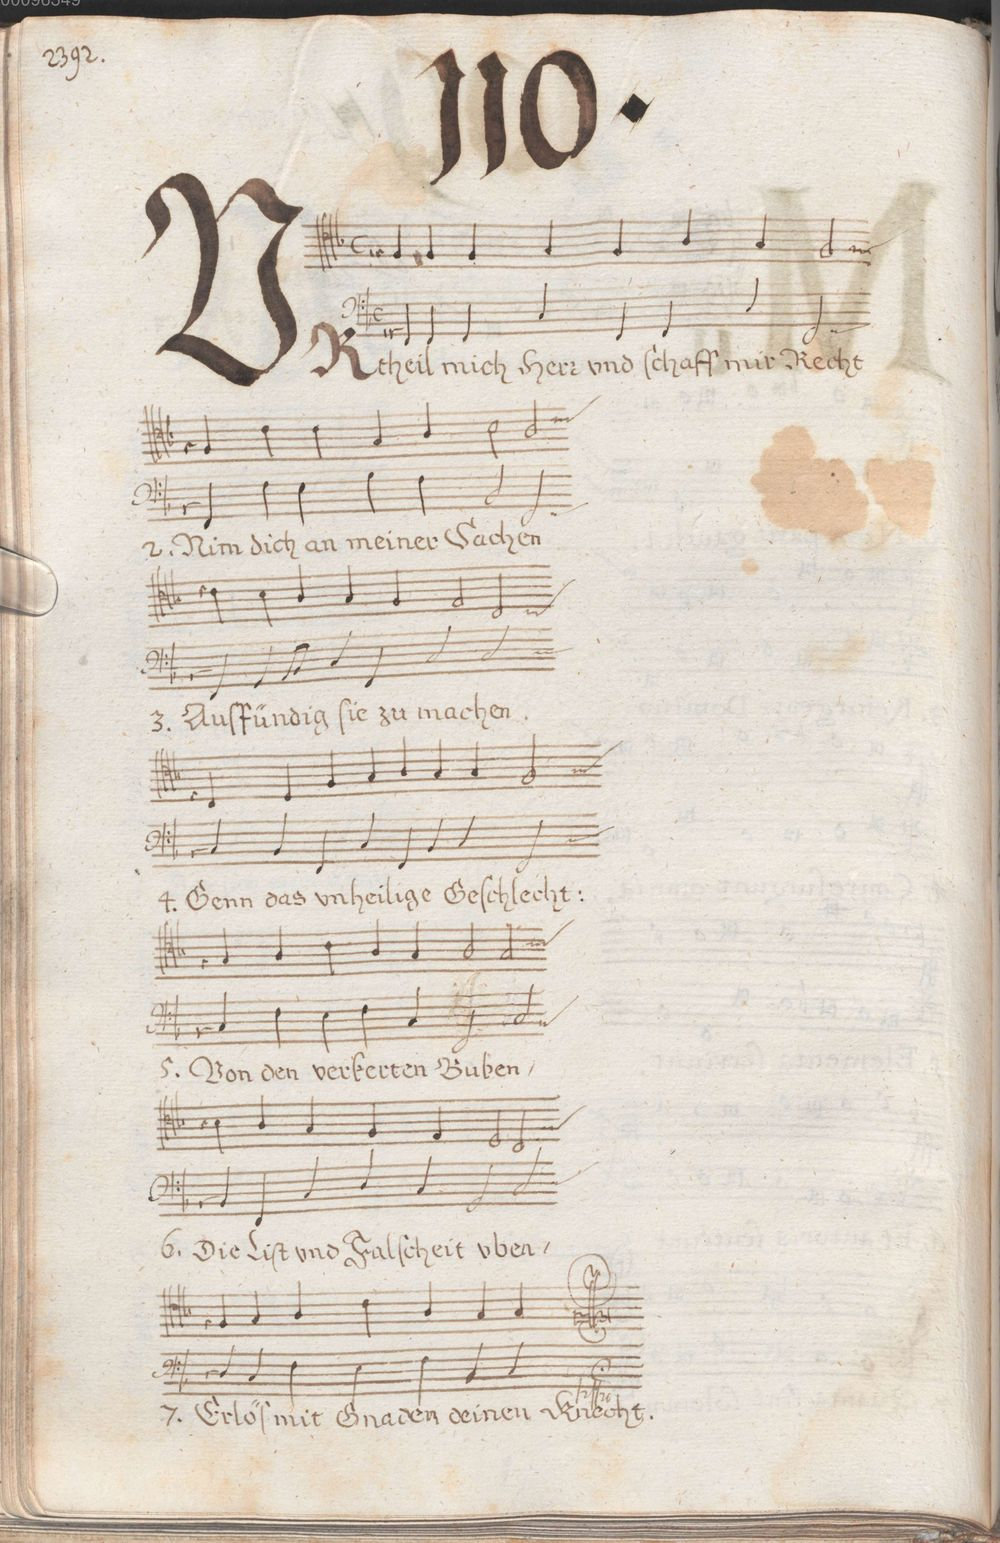 00096349
2392.
110.
VRtheil mich Herr vnd schaff mir Recht
2. Nim dich an meiner Sachen
3. Ausfündig sie zu machen.
4. Genn das vnheilige Geschlecht:
5. Von den verkerten Buben/
6. Die List vnd Falscheit vben/
7. Erlös mit Gnaden deinen Knecht.